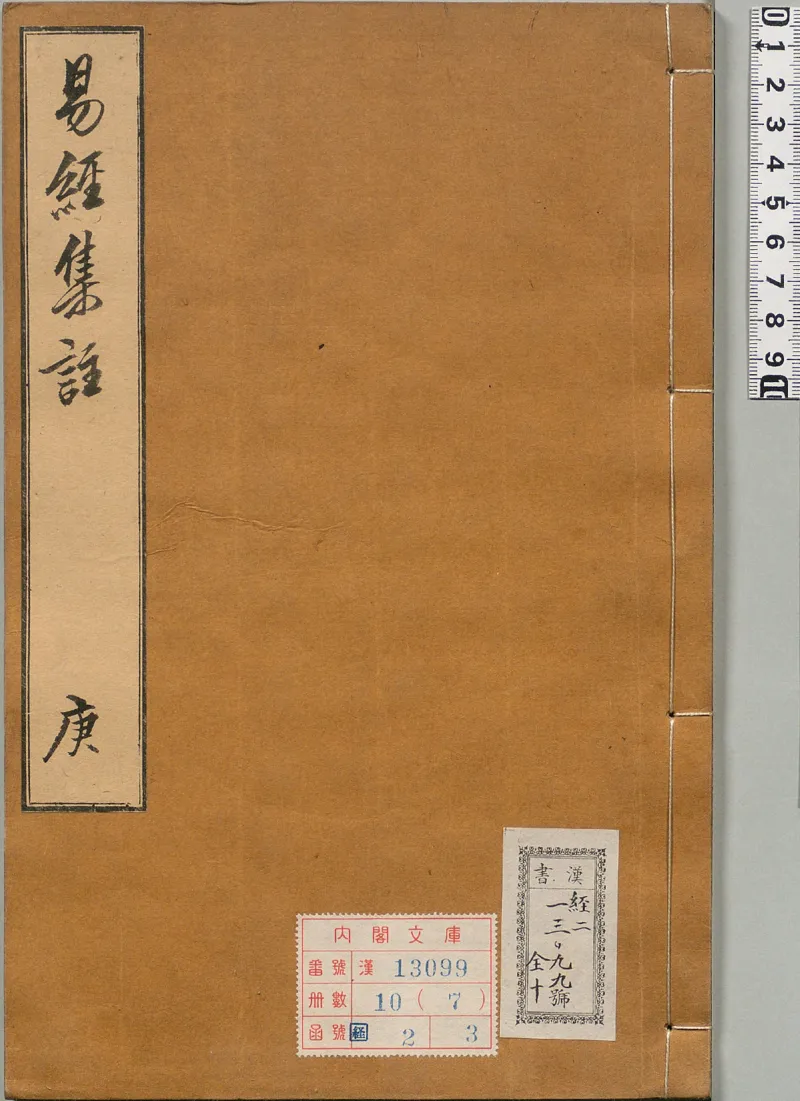 易經集註
庚
漢書
經二
一三〇九九號
全十
内閣文庫
番號 漢 13099
冊數 10(7)
函號 経 2 3
0 1 2 3 4 5 6 7 8 9 10